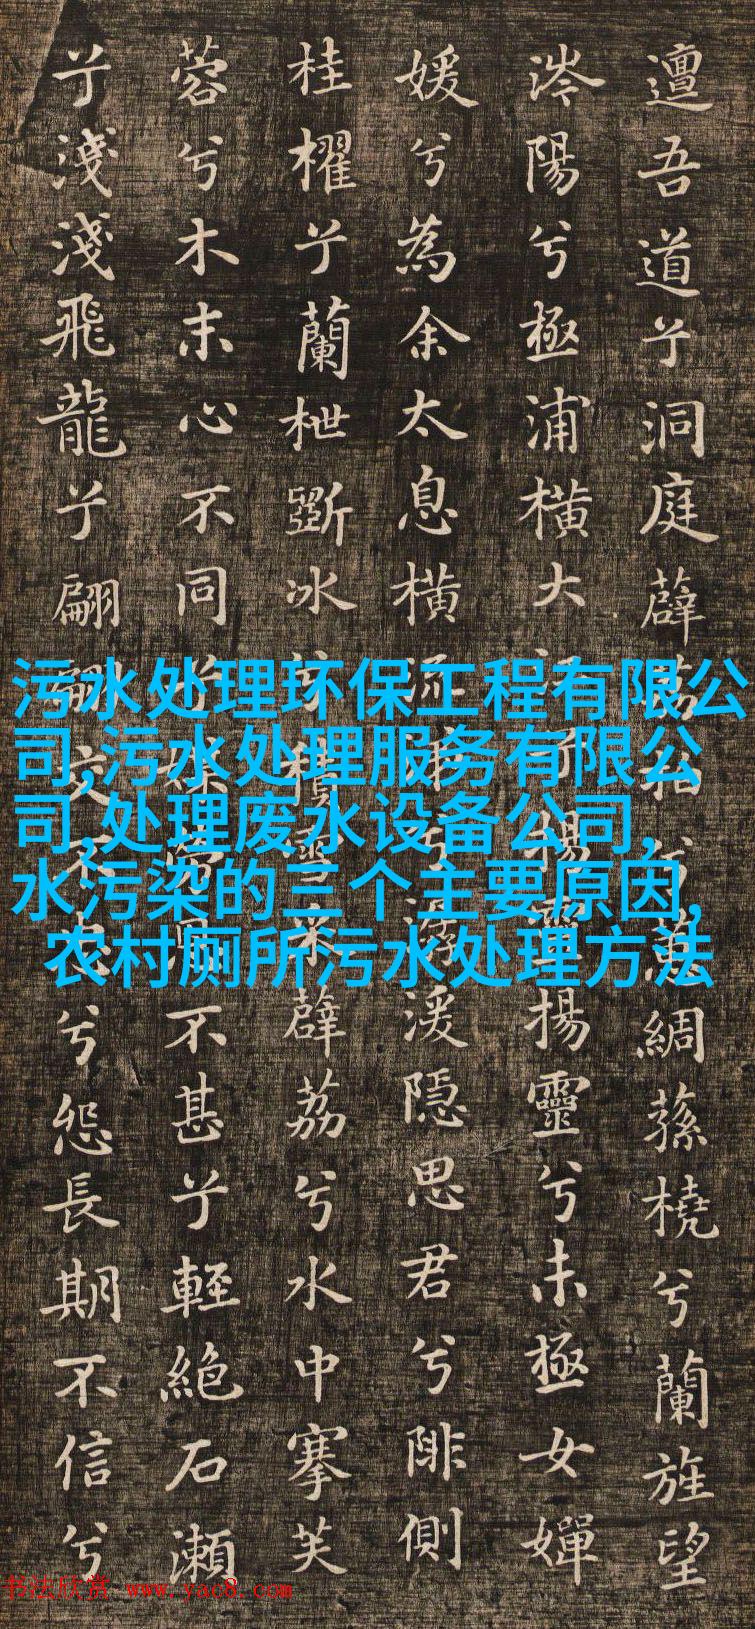 邅吾道兮洞庭薜荔拍兮蕙綢蓀橈兮蘭旌望
涔陽兮極浦橫大江兮揚靈揚靈兮未極女嬋
媛兮為余太息橫流涕兮潺湲隱思君兮陫側
桂櫂兮蘭枻斲冰兮積雪采薜荔兮水中搴芙
蓉兮木末心不同兮媒勞恩不甚兮輕絕石瀨
兮淺淺飛龍兮翩翩交不忠兮怨長期不信兮
污水处理环保工程有限公
司,污水处理服务有限公
司,处理废水设备公司,
水污染的三个主要原因,
农村厕所污水处理方法
书法欣赏 www.yac8.com